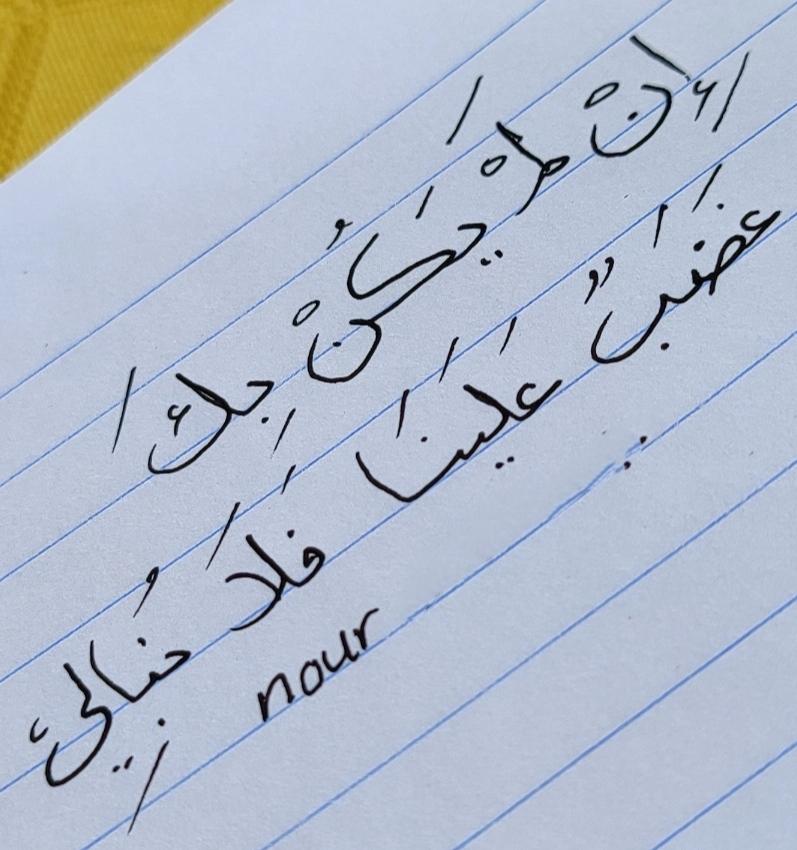 إِنْ لَمْ يَكُنْ بِكَ
غَضَبٌ عَلَينَا فَلَا نُبَالِي
nour